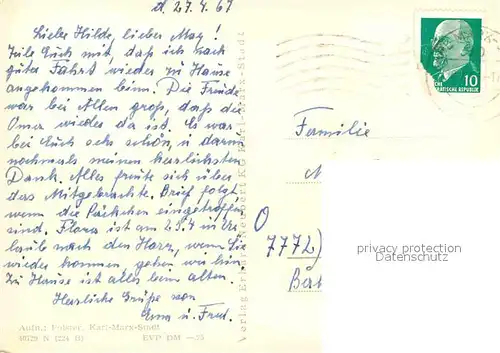 d. 27.4.67
Liebe Hilde, lieber Max!
Teile Euch mit, daß ich nach
guter Fahrt wieder zu Hause
angekommen binn. Die Freude
war bei Allen groß, daß die
Oma wieder da ist. Es war
bei Euch sehr schön, u darum
nochmals meinen herzlichsten
Dank. Alles freute sich über
das Mitgebrachte. Brief folgt,
wenn die Päckchen eingetroffen
sind. Flora ist am 29.4 in Ur
laub nach den Harz, wenn Sie
wieder kommen gehen wir hin
zu Hause ist alles beim alten.
Herzliche Grüße von
Erna u. Fred.
Aufn.: Polster, Karl-Marx-Stadt
EVP DM —,25
Verlag Erhard Neubert KG Karl-Marx-Stadt
10
DEUTSCHE
DEMOKRATISCHE REPUBLIK
Familie
7772)
privacy protection
Datenschutz